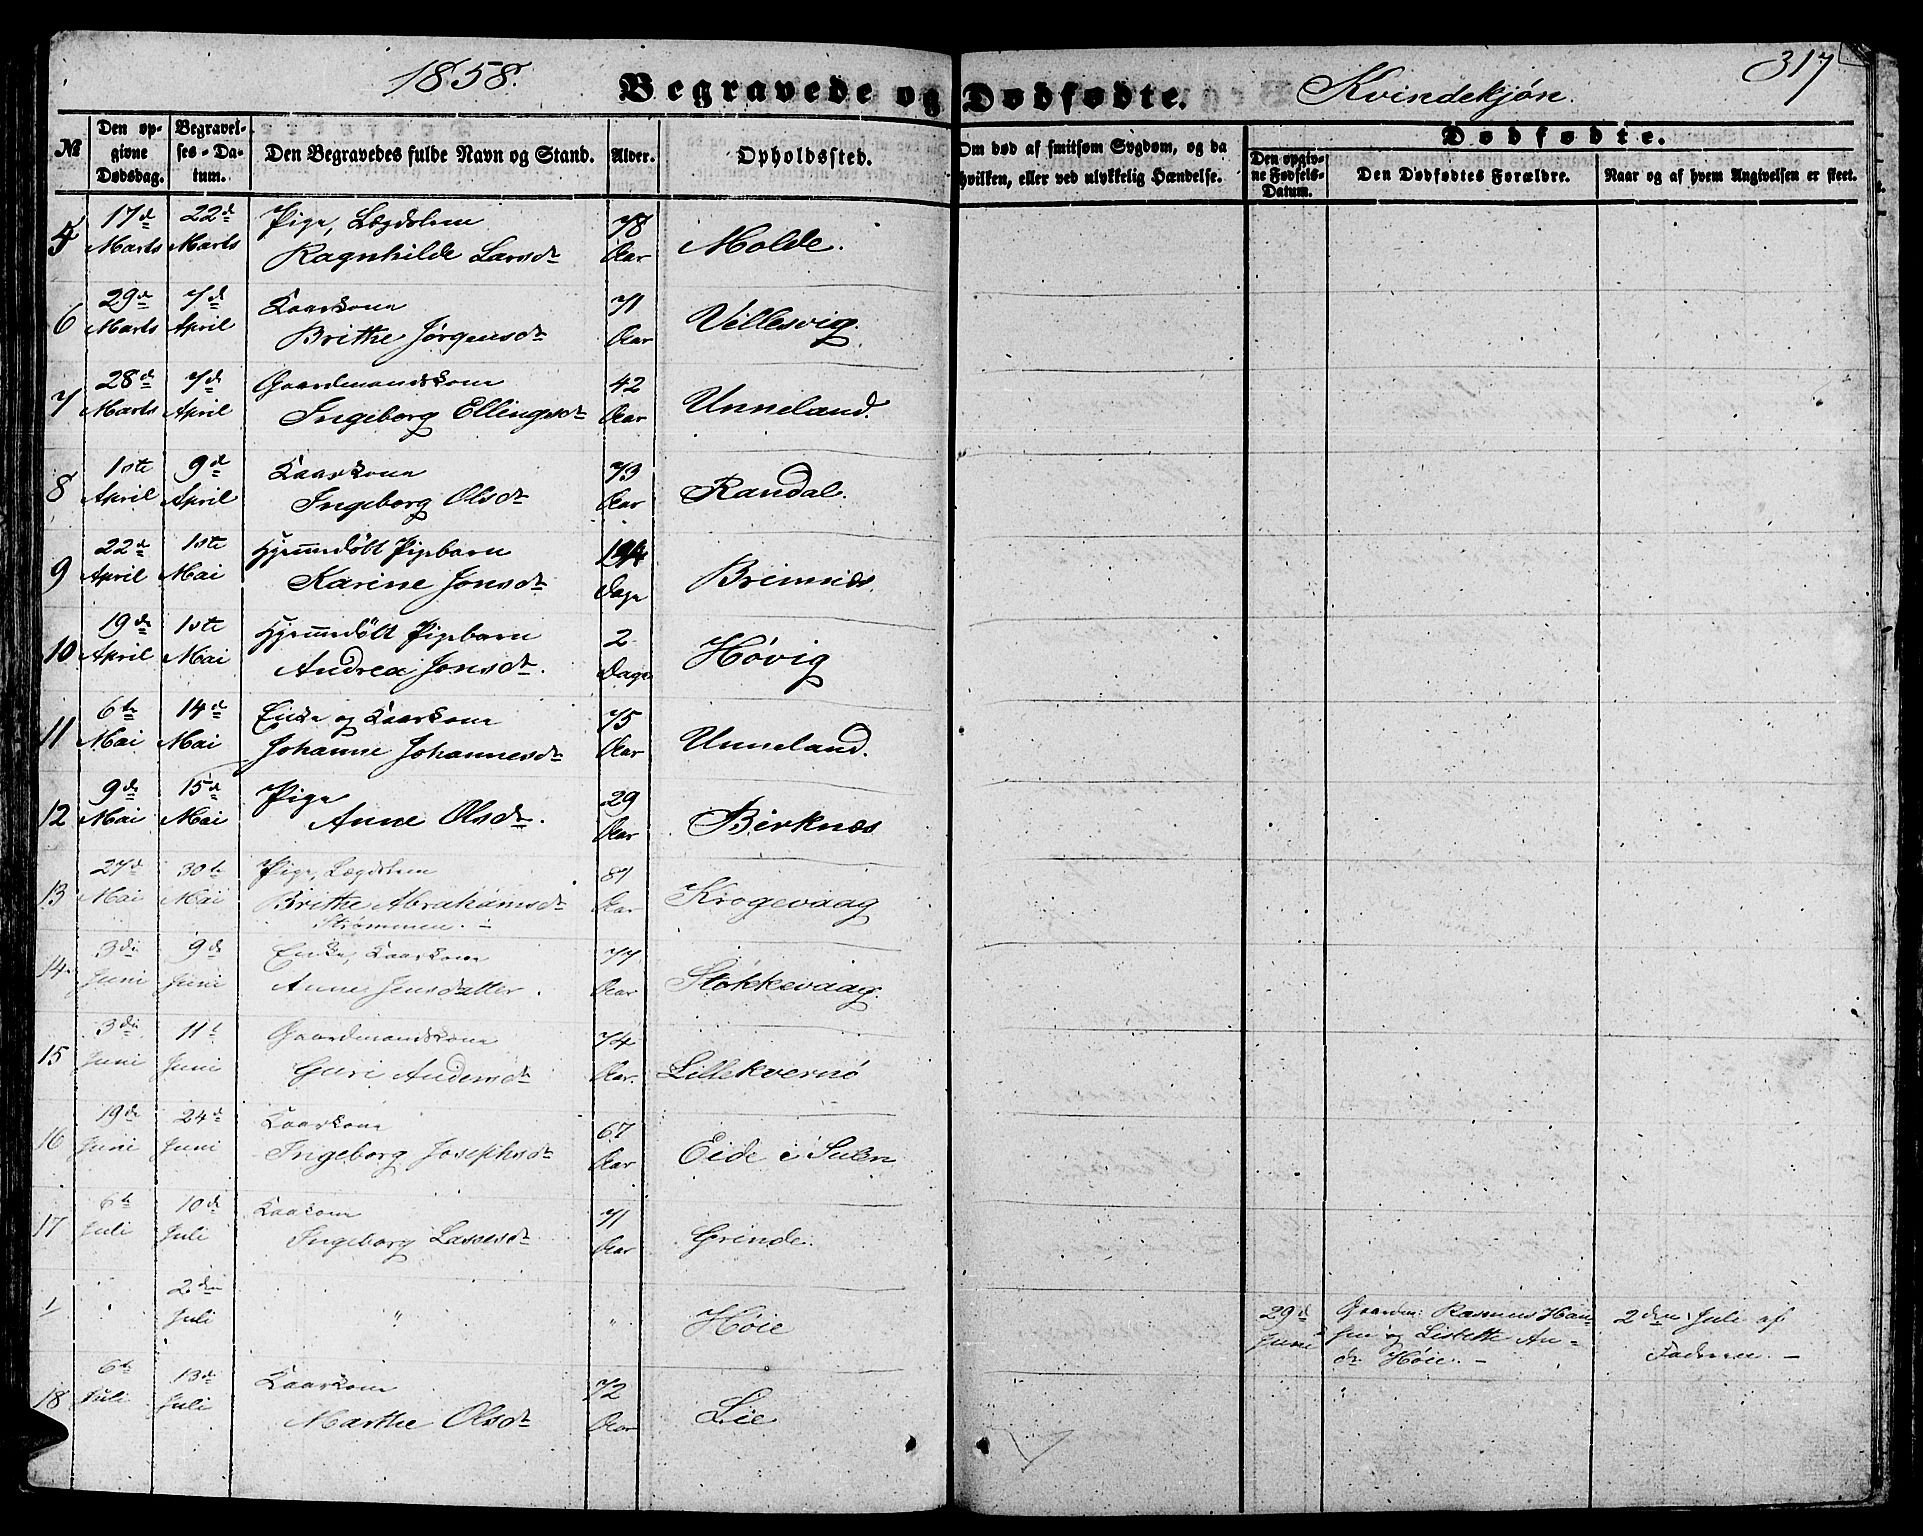 1858.
Begravede og Dødfødte.
Kvindekjøn.
317
№
Den op-
givne
Dødsdag.
Begravel-
ses-Da-
tum.
Den Begravedes fulde Navn og Stand.
Alder.
Opholdssted.
Om død af smitsom Sygdom, og da
hvilken, eller ved ulykkelig Hændelse.
Dødfødte.
Den opgiv-
ne Fødsels-
Datum.
Den Dødfødtes Forældre.
Naar og af hvem Angivelsen er skeet.
5
17d
Marts
22d
Marts
Pige, Lægdslem
Ragnhilde Larsdr
78
Aar
Molde.
6
29d
Marts
7d
April
Kaarkone
Brithe Jørgensdr
71
Aar
Villesvig.
7
28d
Marts
7d
April
Gaardmandskone
Ingeborg Ellingsdr
42
Aar
Unneland.
8
1ste
April
9d
April
Kaarkone
Ingeborg Olsdr
73
Aar
Randal.
9
22d
April
1ste
Mai
Hjemmedøbt Pigebarn
Karine Jonsdr
Dage
Brimnæs.
10
19de
April
1ste
Mai
Hjemmedøbt Pigebarn
Andrea Jonsdr.
2
Dage
Høvig
11
6te
Mai
14d
Mai
Enke og Kaarkone
Johanne Johannesdr
75
Aar
Unneland.
12
9de
Mai
15d
Mai
Pige
Anne Olsdr.
29
Aar
Birknæs
13
27d
Mai
30te
Mai
Pige, Lægdslem
Brithe Abrahamsdr
Strømmen. -
87
Aar
Krogevaag
14
3die
Juni
9d
Juni
Enke, Kaarkone
Anne Jensdatter.
77
Aar
Stokkevaag.
15
3die
Juni
11t
Juni
Gaardmandskone
Guri Andersdr
74
Aar.
Lillekvernø
16
19de
Juni
24d
Juni
Kaarkone
Ingeborg Josephsdr
67
Aar
Eide i Sulen
17
6te
Juli
10d
Juli
Kaarkone
Ingeborg Lassesdr
71
Aar
Grinde.
1/
"
2den
Juli
"
"
Høie
29d
Juni
Gaardm: Rasmus Han-
sen og Lisbethe An-
dr Høie. -
2den Juli af
Faderen. -
18
6te
Juli
13d
Juli
Kaarkone
Marthe Olsdr
72
Aar
Lie
"